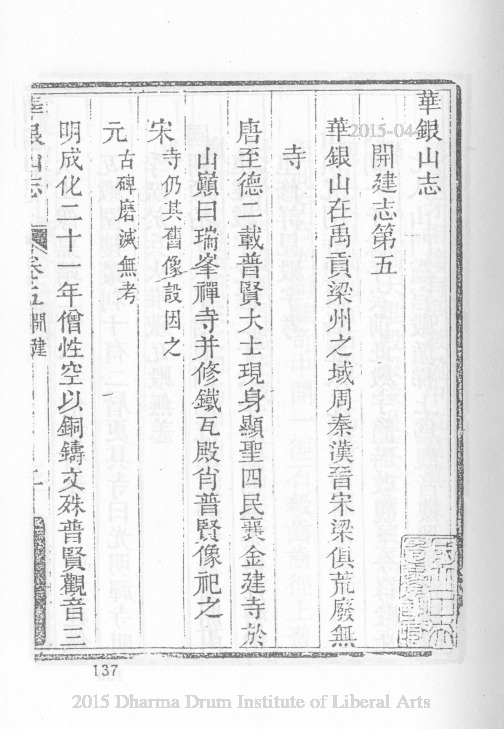 華銀山志
開建志第五
華銀山在禹貢梁州之域周秦漢晉宋梁俱荒廢無
寺
唐至德二載普賢大士現身顯聖四民襄金建寺於
山巔曰瑞峯禪寺并修鐵瓦殿肖普賢像祀之
宋寺仍其舊像設因之
元古碑磨滅無考
明成化二十一年僧性空以銅鑄文殊普賢觀音三
華銀山志 卷之五 開建
137
2015-04
2015 Dharma Drum Institute of Liberal Arts